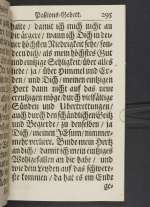 Passions-Gebett. 295
halte / damit ich mich nicht an
dir ärgere / wann ich Dich in dei-
ner höchsten Niedrigkeit sehe / son-
dern dich / als mein höchstes Gut
und einzige Seligkeit / über alles
liebe / ja / über Himmel und Er-
den und Dich / meinen
Hort dann nicht auf das neue
creutzigen möge durch vielfältige
Sünden und Ubertrettungen /
auch durch den schändlichen Geitz
und Begierde / zu denselben / ja
Dich / meinen JEsum / nimmer-
mehr verliere. Binde mein Hertz
an dich / damit ich mein einiges
Wohlgefallen an dir habe / und
wie dein Leyden auf das schwere-
ste kommen / da hat es ein Ende
ge-